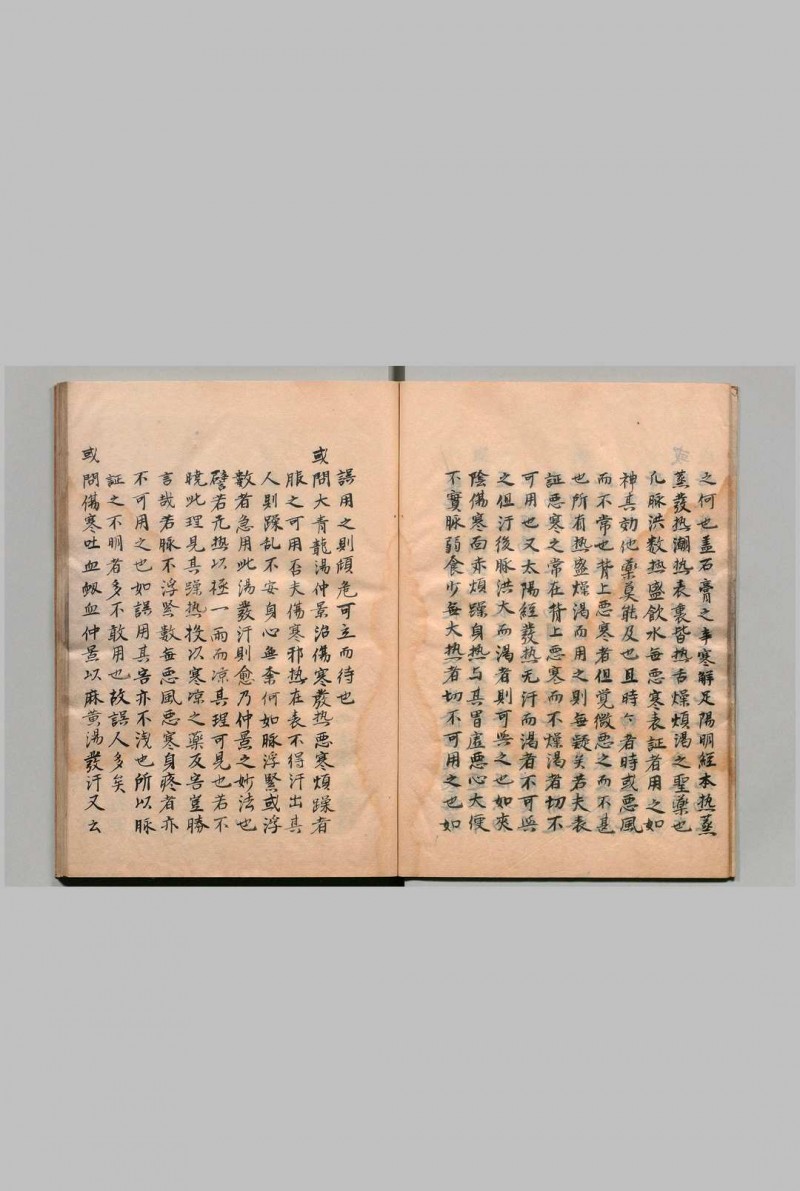 之何也盖石膏之辛寒解足陽明經本热蒸
蒸發热潮热表裏皆热舌燥煩渴之聖藥也
凡脉洪数热盛飲水無惡寒表証者用之如
神其効他藥莫能及也且時々者時或惡風
而不常也背上惡寒者但覚微惡之而不甚
也所有热盛燥渴而用之則無疑矣若夫表
証惡寒之常在背上惡寒而不燥渴者切不
可用也又太陽經發热无汗而渴者不可與
之但汗後脉洪大而渴者則可與之也如夾
陰傷寒面赤煩躁身热与其胃虛惡心大便
不實脉弱食少無大热者切不可用之也如
誤用之則傾危可立而待也
或問大青龍湯仲景治傷寒發热惡寒煩躁者
服之可用否夫傷寒邪热在表不得汗出其
人則躁乱不安身心無柰何如脉浮緊或浮
数者急用此湯發汗則愈乃仲景之妙法也
譬若亢热以極一雨而凉其理可見也若不
曉此理見其躁热投以寒凉之藥及害豈勝
言哉若脉不浮緊数無惡風惡寒身疼者亦
不可用之也如誤用其害亦不浅也所以脉
証之不明者多不敢用也故誤人多矣
或問傷寒吐血衂血仲景以麻黄湯發汗又云